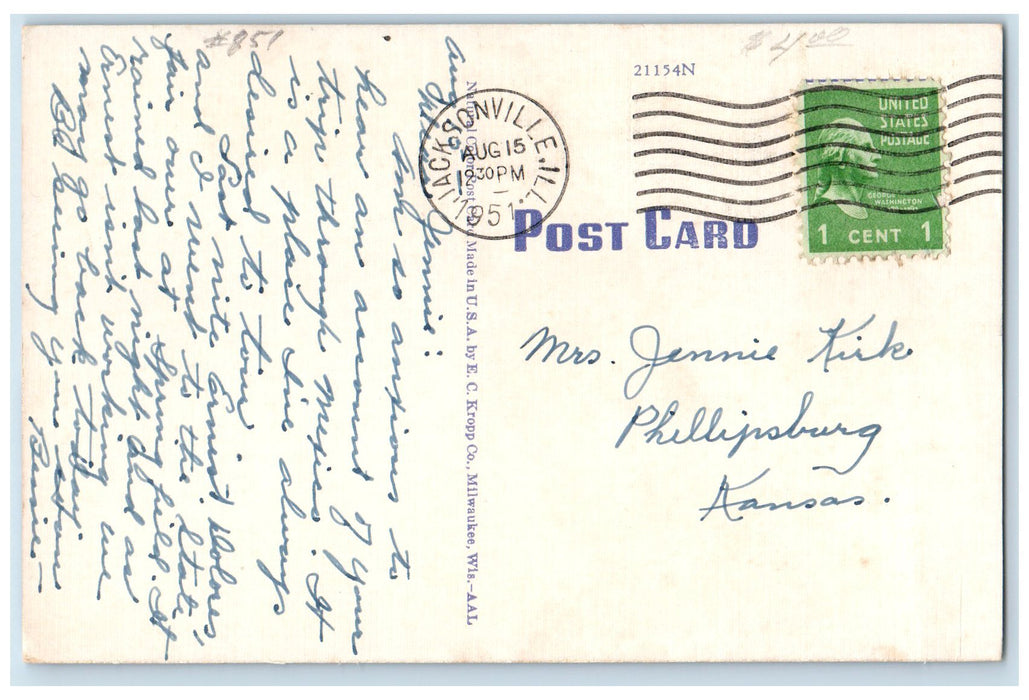 #851
$4.00
21154N
UNITED
STATES
POSTAGE
GEORGE
WASHINGTON
1 CENT 1
JACKSONVILLE, ILL.
AUG 15
30PM
1951
POST CARD
Natural Color Post Card Made in U.S.A. by E. C. Kropp Co., Milwaukee, Wis.—AAL
Mrs. Jennie Kirk
Phillipsburg
Kansas.
Aug
Jennie:
so anxious to
hear an account of your
trip through Mexico. It
is a place I've always
desired to tour.
Last nite Ernist, Dolores,
and I went to the State
fair over at Springfield. It
rained last night and as
Ernist isn't working we
may go back today
Be seeing you
Bernice—